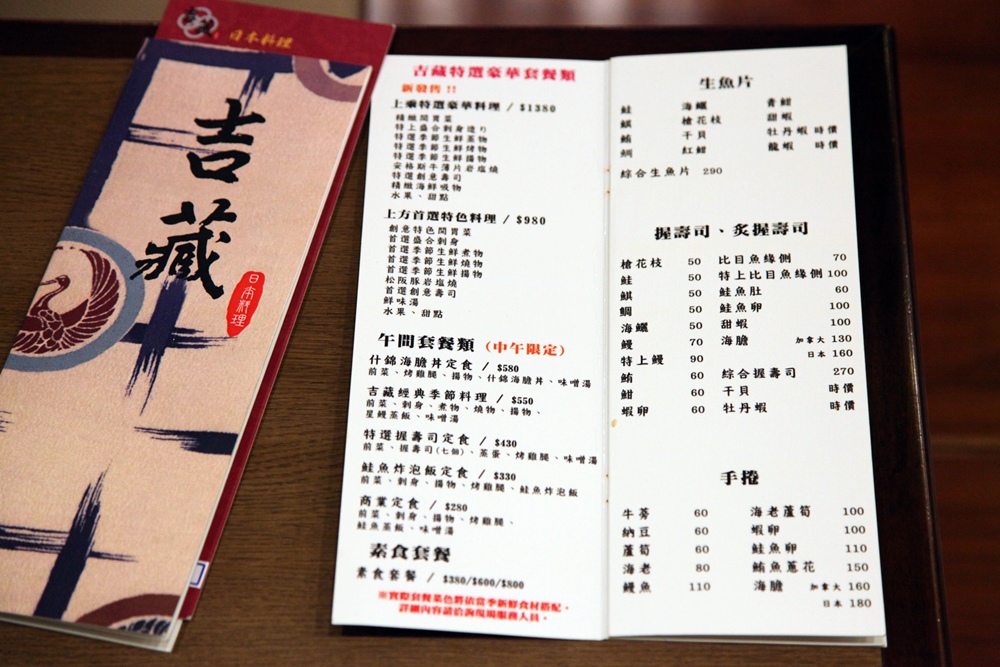 日本料理
吉藏
日本料理
吉藏特選豪華套餐類
新發售!!
上乘特選豪華料理 / $1380
精緻開胃菜
特上盛合刺身造り
特選季節生鮮蒸物
特選季節生鮮烤物
特選季節生鮮揚物
安格斯牛薄片岩塩燒
特選創意壽司
精緻海鮮吸物
水果、甜點
上方首選特色料理 / $980
創意特色開胃菜
首選盛合刺身
首選季節生鮮煮物
首選季節生鮮燒物
首選季節生鮮揚物
松阪豚岩塩燒
首選創意壽司
鮮味湯
水果、甜點
午間套餐類 (中午限定)
什錦海膽丼定食 / $580
前菜、烤雞腿、揚物、什錦海膽丼、味噌湯
吉藏經典季節料理 / $550
前菜、刺身、煮物、燒物、揚物、
星鰻蒸飯、味噌湯
特選握壽司定食 / $430
前菜、握壽司(七個)、蒸蛋、烤雞腿、味噌湯
鮭魚炸泡飯定食 / $330
前菜、刺身、揚物、烤雞腿、鮭魚炸泡飯
商業定食 / $280
前菜、刺身、揚物、烤雞腿、
鮭魚蒸飯、味噌湯
素食套餐
素食套餐 / $380/$600/$800
※實際套餐菜色將依當季新鮮食材搭配,
詳細內容請洽詢現場服務人員。
生魚片
鮭 海鱺 青魽
鯕 槍花枝 甜蝦
鮪 干貝 牡丹蝦 時價
鯛 紅魽 龍蝦 時價
綜合生魚片 290
握壽司、炙握壽司
槍花枝 50 比目魚緣側 70
鮭 50 特上比目魚緣側 100
鯕 50 鮭魚肚 60
鯛 50 鮭魚卵 100
海鱺 50 甜蝦 100
鰻 70 海膽 加拿大 130
特上鰻 90 日本 160
鮪 60 綜合握壽司 270
魽 60 干貝 時價
蝦卵 60 牡丹蝦 時價
手捲
牛蒡 60 海老蘆筍 100
納豆 60 蝦卵 100
蘆筍 60 鮭魚卵 110
海老 80 鮪魚蔥花 150
鰻魚 110 海膽 加拿大 160
日本 180